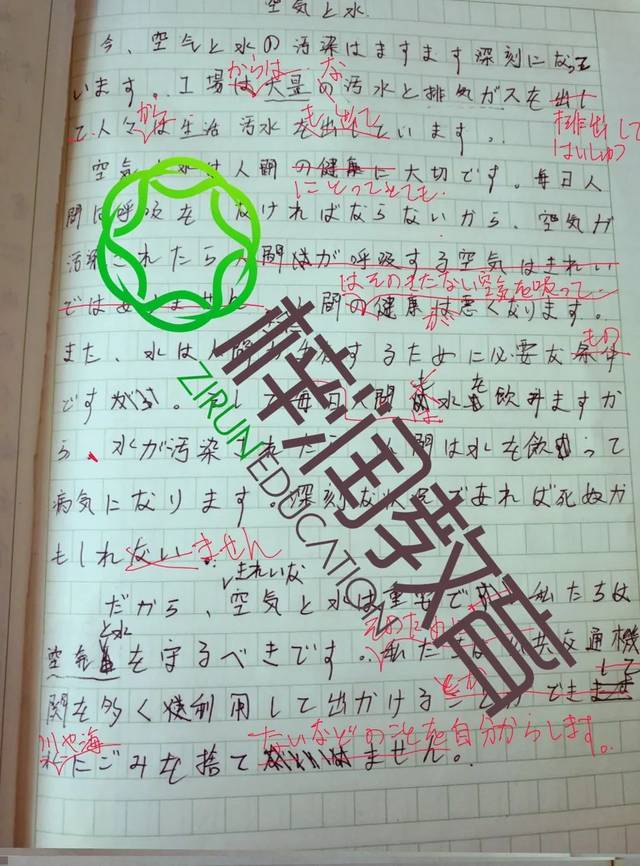 空気と水
今、空气と水の汚染はますます深刻になって
からは な
います。工場は大量の汚水と排気ガスを出し
から もし出して 排出して
て、人々は生活汚水を出しています。
はいしゅつ
空気 水は人間の健康に大切です。毎日人
にとってとても
間は呼吸を なければならないから、空気が
汚染されたら人間はが呼吸する空気はきれい
はそのきたない空気を吸って
ではありません 間の健康は悪くなります。
また、水は人間が するために必要な条件
もの
ですが。 毎日人間は水を飲みますか
ら、水が汚染された 間は水を飲って
病気になります。深刻な状況であれば死ぬか
もしれない。
ません
きれいな
だから、空気と水は重要です 私たちは
と水 そのために
空気を守るべきです。私たちは公共交通機
して
関を多く利用して出かけることができ
川や海 ないなどのことを自分からします。
水にごみを捨て ません。
ZIRUN EDUCATION
梓润教育